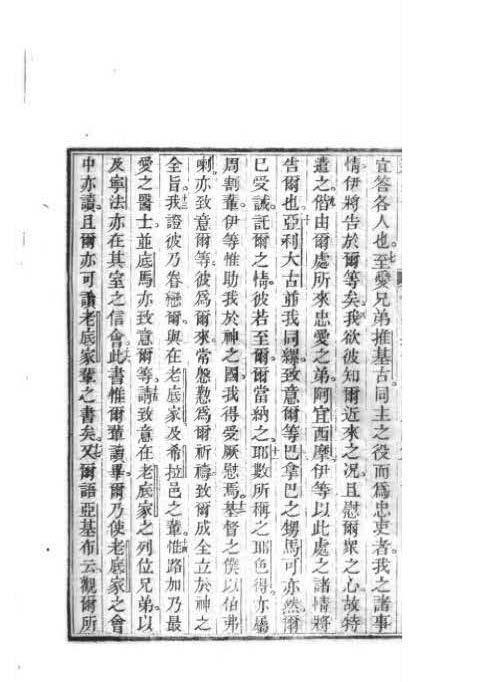 宜答各人也。七至愛兄弟推基古同主之役而為忠吏者。我之諸事
情伊將告於爾等矣。八我欲彼知爾近來之況且慰爾眾之心故特
遣之。九偕由爾處所來忠愛之弟。阿宜西摩伊等以此處之諸情將
告爾也。十亞利大古並我同縲致意爾等巴拿巴之甥馬可亦然。爾
已受誡。託爾之情。彼若至爾。爾當納之。十一耶數所稱之耶色得。亦屬
周割輩。伊等惟助我於神之國。我得受厥慰焉。十二基督之僕以伯弗
喇亦致意爾等。彼為爾來。常慇懃為爾祈禱。致爾成全立於神之
全旨。十三我證彼乃眷戀爾與在老底家及希拉邑之輩。十四惟路加乃最
愛之醫士。並底馬亦致意爾等。十五請致意在老底家之列位兄弟。以
及寧法亦在其室之信會。十六此書惟爾輩讀畢。爾乃使老底家之會
中亦讀。且爾亦可讀老底家輩之書矣。十七又爾語亞基布云。觀爾所